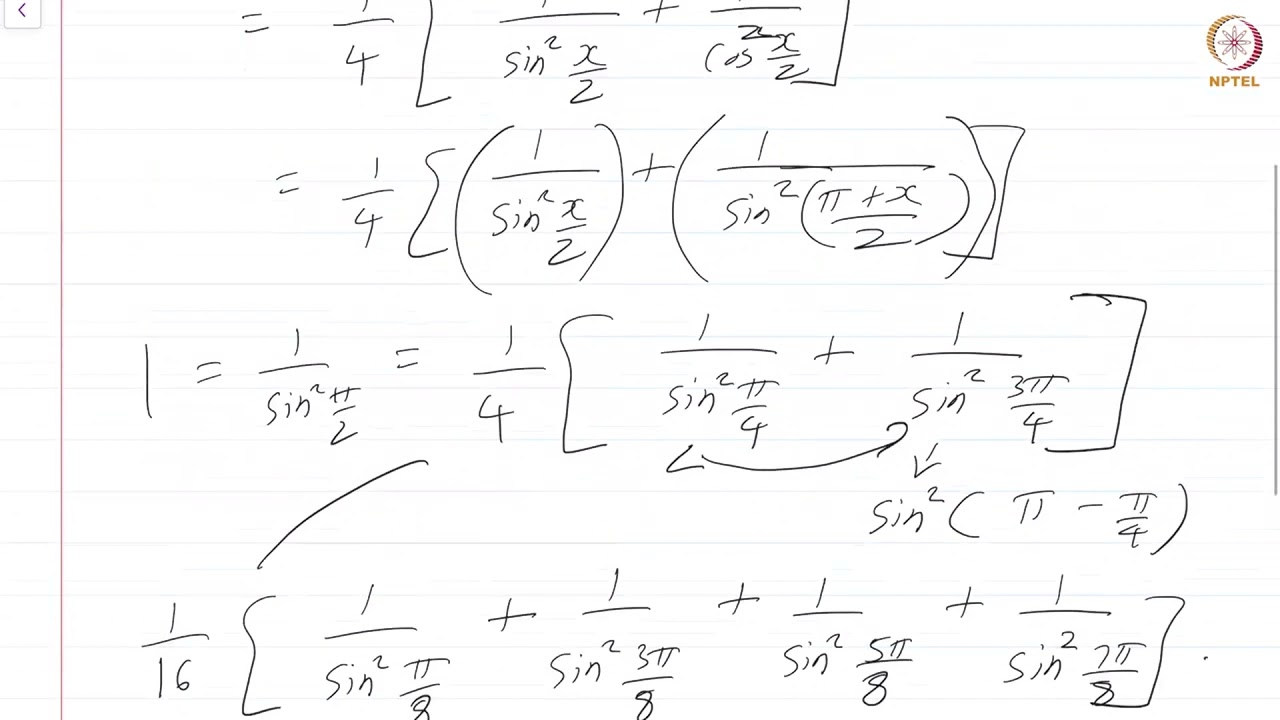 = 1/4 [ 1/(sin² x/2) + 1/(cos² x/2) ]
NPTEL
= 1/4 [ ( 1/(sin² x/2) ) + ( 1/(sin² (π + x)/2) ) ]
1 = 1/(sin² π/2) = 1/4 [ 1/(sin² π/4) + 1/(sin² 3π/4) ]
sin² ( π − π/4 )
1/16 [ 1/(sin² π/8) + 1/(sin² 3π/8) + 1/(sin² 5π/8) + 1/(sin² 7π/8) ] .